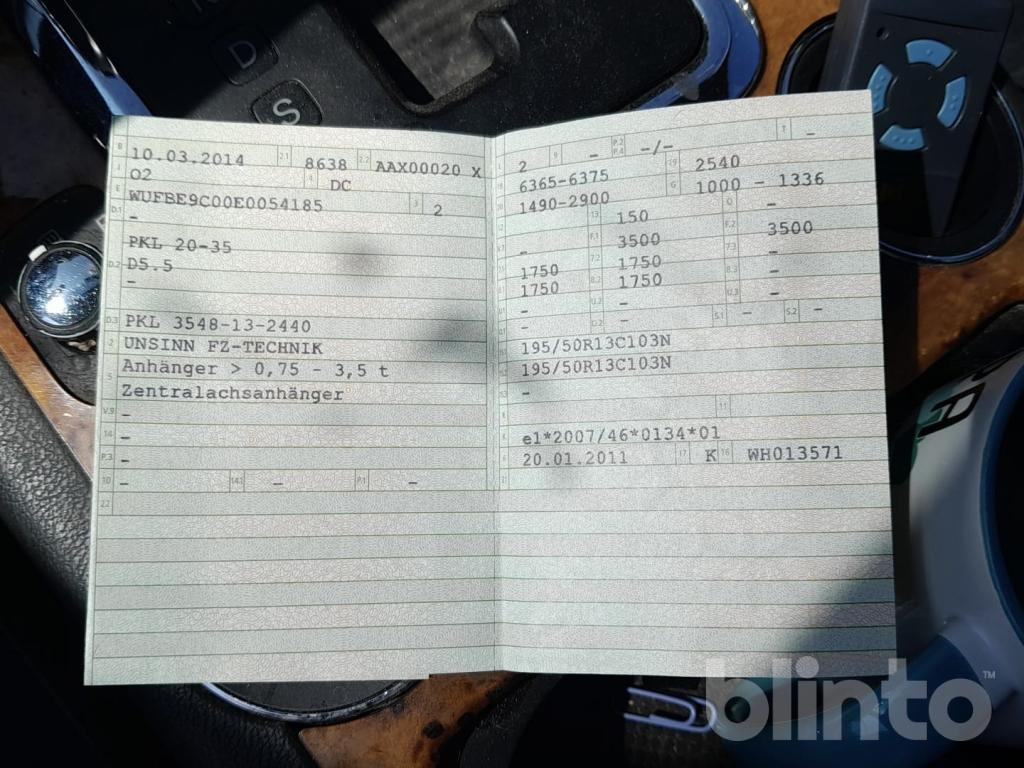 D
S
B 10.03.2014 2.1 8638 2.2 AAX00020 X
J O2 4 DC
E WUFBE9C00E0054185 3 2
D.1 –
PKL 20-35
D.2 D5.5
–
D.3 PKL 3548-13-2440
2 UNSINN FZ-TECHNIK
Anhänger > 0,75 - 3,5 t
5 Zentralachsanhänger
V.9 –
14 –
P.3 –
10 – 14.1 – P.1 –
22
L 2 9 – P.2 P.4 -/- T –
18 6365-6375 19 2540
20 1490-2900 G 1000 - 1336
12 – 13 150 Q –
V.7 – F.1 3500 F.2 3500
7.1 1750 7.2 1750 7.3 –
8.1 1750 8.2 1750 8.3 –
U.1 – U.2 – U.3 –
O.1 – O.2 – S.1 – S.2 –
15.1 195/50R13C103N
15.2 195/50R13C103N
15.3 –
R 11
K e1*2007/46*0134*01
6 20.01.2011 17 K 16 WH013571
21
blinto™